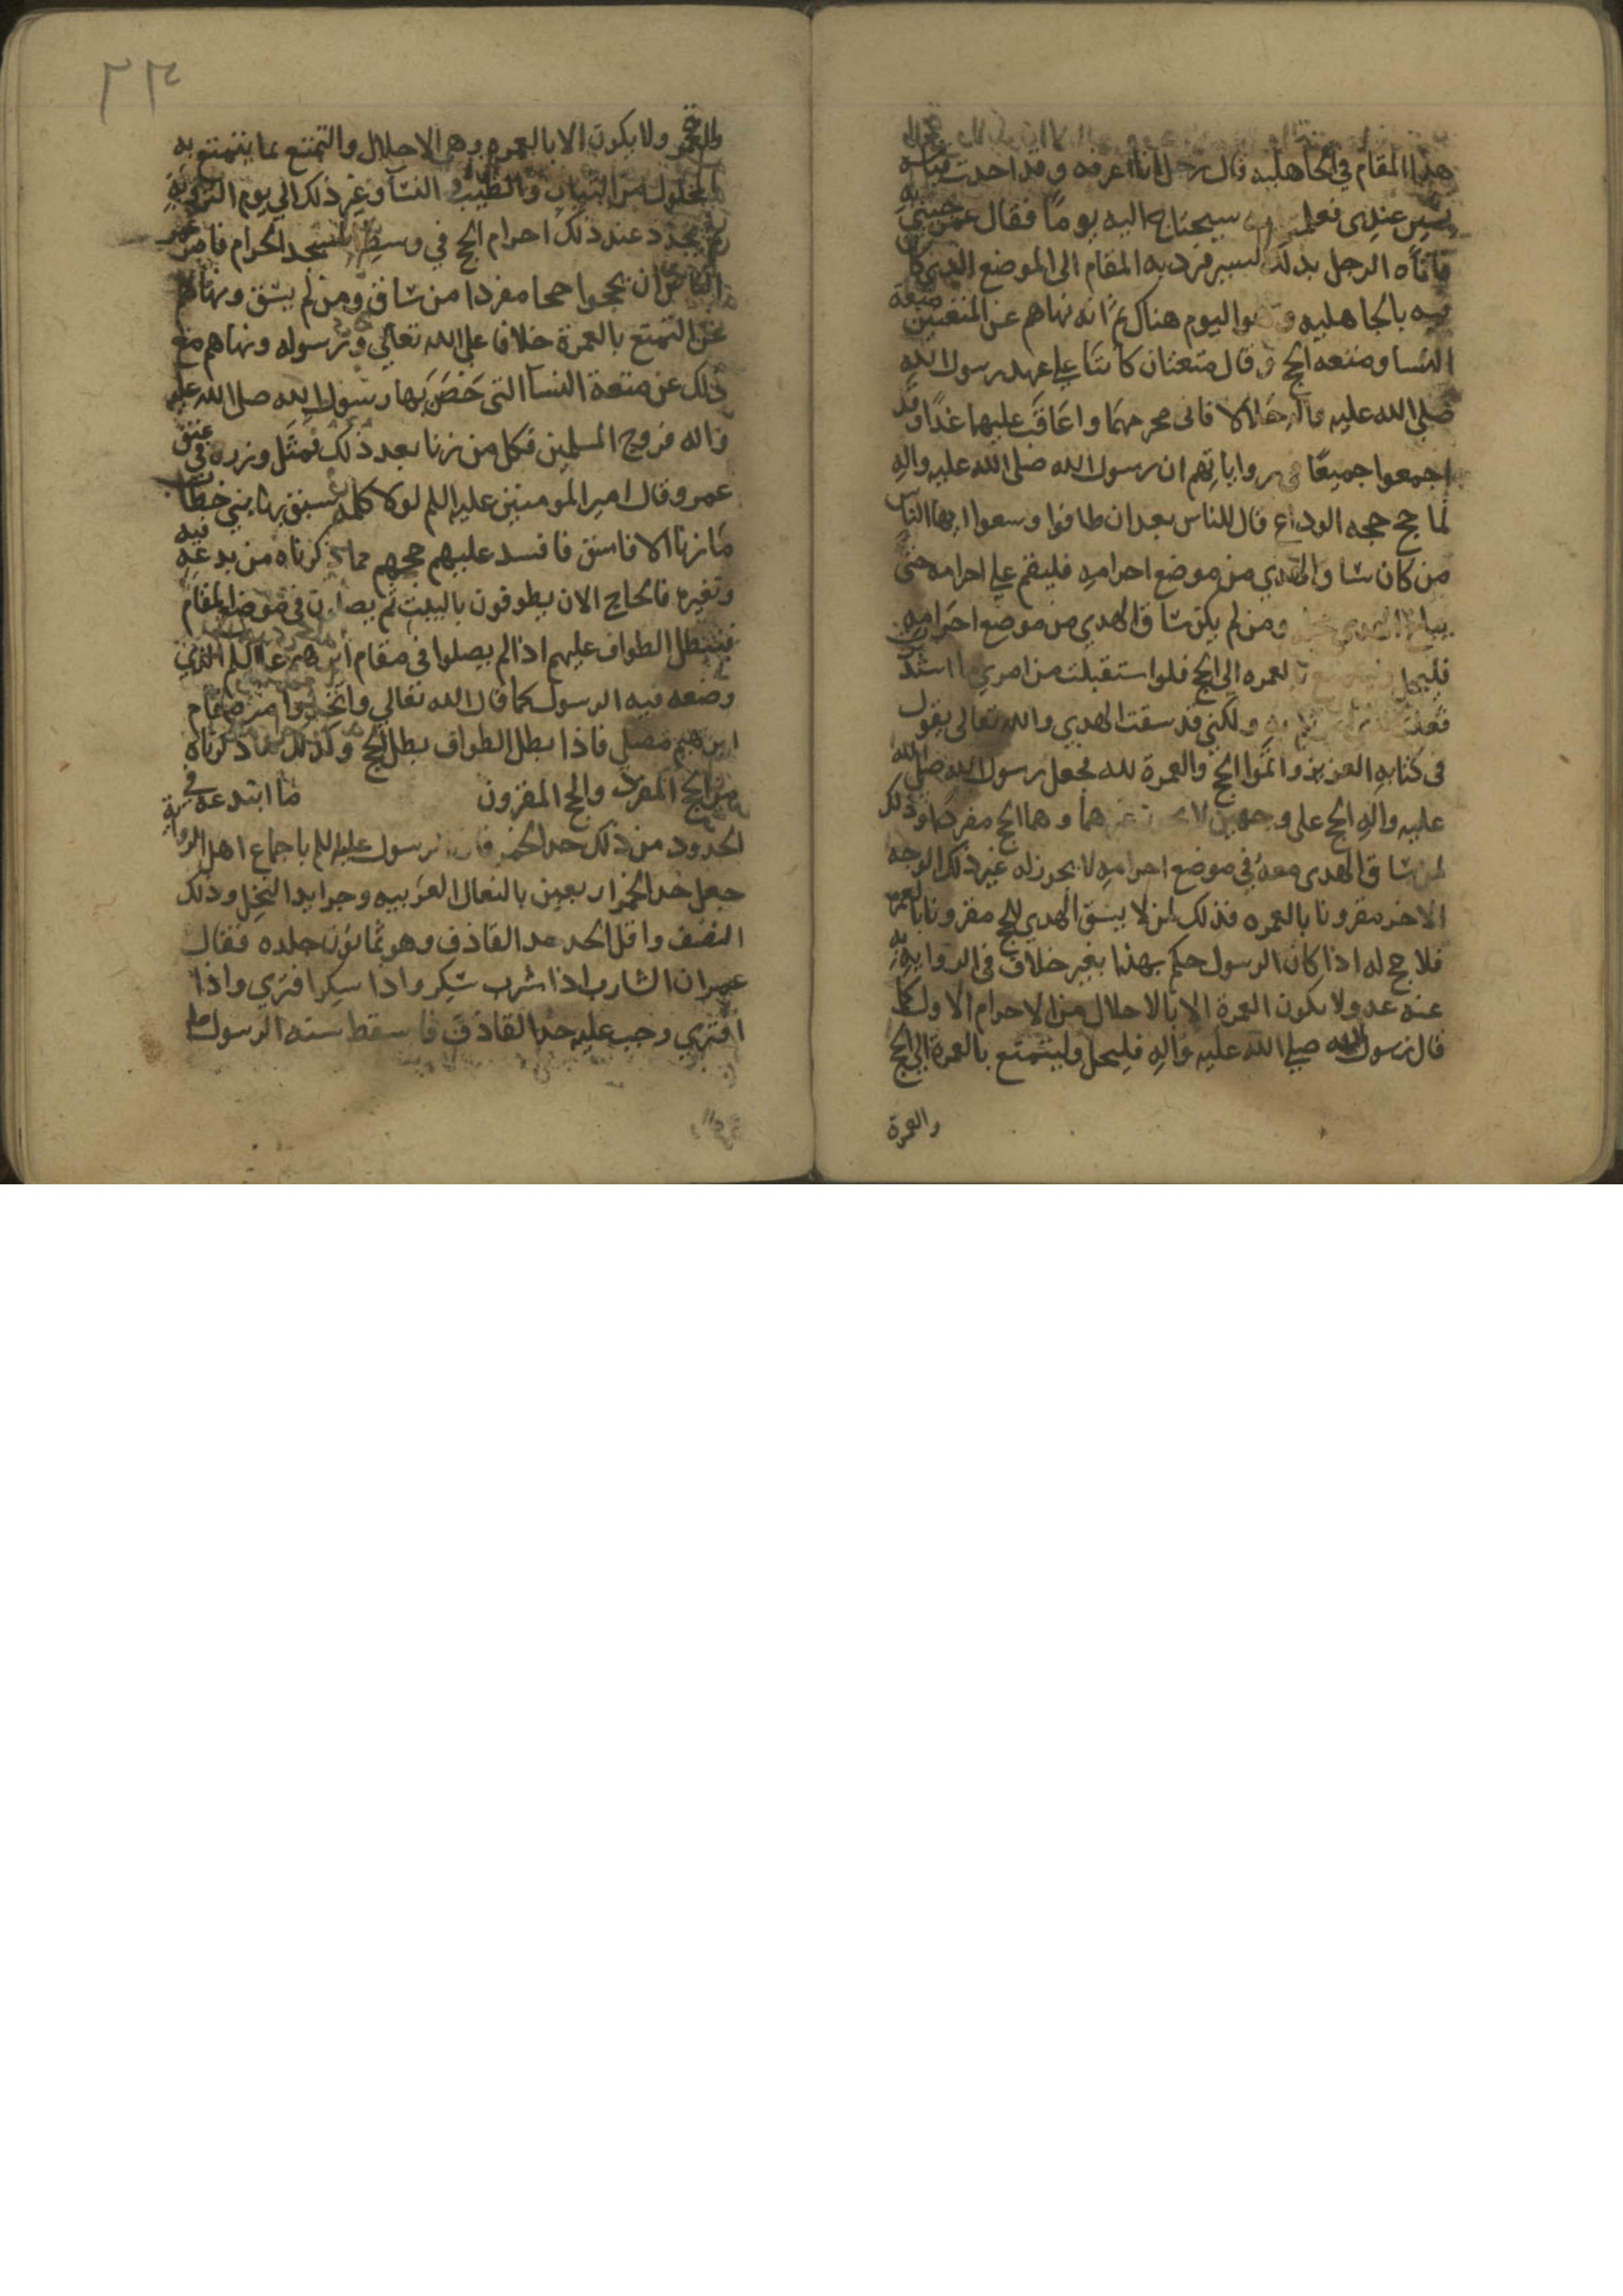 هذا المقام في الجاهليه قال رجل انا اعرفه وقد اخدت قياسه
بسير عندي فعلمت سيحتاج اليه يوما فقال عمر جيني به
فاتاه الرجل بذلك السير فرد به المقام الى الموضع الذي كان
فيه بالجاهليه وهو اليوم هناك ثم انه نهاهم عن المتعتين متعة
النسا ومتعه الحج وقال متعتان كانتا علي عهد رسول الله
صلى الله عليه واله حلالا فانى محرمهما واعاقب عليهما غدا وقد
اجمعوا جميعا في رواياتهم ان رسول الله صلى الله عليه واله
لما حج حجه الوداع قال للناس بعد ان طافوا وسعوا ايها الناس
من كان ساق الهدي من موضع احرامه فليقم علي احرامه حتى
يبلغ الهدي محله ومن لم يكن ساق الهدي من موضع احرامه
فليحل وليتمتع بالعمره الى الحج فلو استقبلت من امري ما استد
فعلت ولكني قد سقت الهدي والله تعالى يقول
فى كتابه العزيز واتموا الحج والعمرة لله فجعل رسول الله صلى الله
عليه واله الحج على وجهين لا غيرهما وهما الحج مفردا وذلك
لمن ساق الهدى معه في موضع احرامه لا يجوز له غير ذلك الوجه
الاخر مقرونا بالعمره فذلك لمن لا يسق الهدي للحج مقرونا بالعمره
فلا حج له اذا كان الرسول حكم بهذا بغير خلاف فى الروايه
عنه عد ولا يكون العمرة الا بالاحلال من الاحرام الاول كما
قال رسول الله صلي الله عليه واله فليحل وليتمتع بالعمرة الى الحج
والعمرة
٢٢٤
والعمرة ولا يكون الا بالعمره وهي الاحلال والتمتع بما يتمتع به
المحلول من الثياب والطيب والنسآ وغير ذلك الي يوم الترويه
ثم يجدد عند ذلك احرام الحج في وسط المسجد الحرام فامر عمر
الناس ان يحجوا حجا مفردا من ساق ومن لم يسق ونهاهم
عن التمتع بالعمرة خلافا علي الله تعالى ورسوله ونهاهم مع
ذلك عن متعة النسآ التى حصن بها رسول الله صلى الله عليه
واله فروج المسلمين فكل من زنا بعد ذلك فمثل وزره في عنق
عمر وقال امير المومنين عليه السلم لولا كلمه سبق بها بني خطاب
ما زنا الا فاسق فافسد عليهم حجهم مما ذكرناه من بدعه فيه
وتغيره فالحاج الان يطوفون بالبيت ثم يصلون فى موضع المقام
فيبطل الطواف عليهم اذا لم يصلوا فى مقام ابرهيم عليه السلم الذي
وضعه فيه الرسول كما قال الله تعالي واتخذوا من مقام
ابرهيم مصلي فاذا بطل الطواف بطل الحج وكذلك ما ذكرناه
من الحج المفرد والحج المقرون ما ابتدعه في
الحدود من ذلك حد الخمر فان الرسول عليه السلم باجماع اهل الروايه
جعل حد الخمر اربعين بالنعال العربيه وجرايد النخل وذلك
النصف واقل الحد حد القاذف وهو ثمانون جلده فقال
عمر ان الشارب اذا شرب سكر واذا سكر افترى واذا
افترى وجب عليه حد القاذف فاسقط سنه الرسول